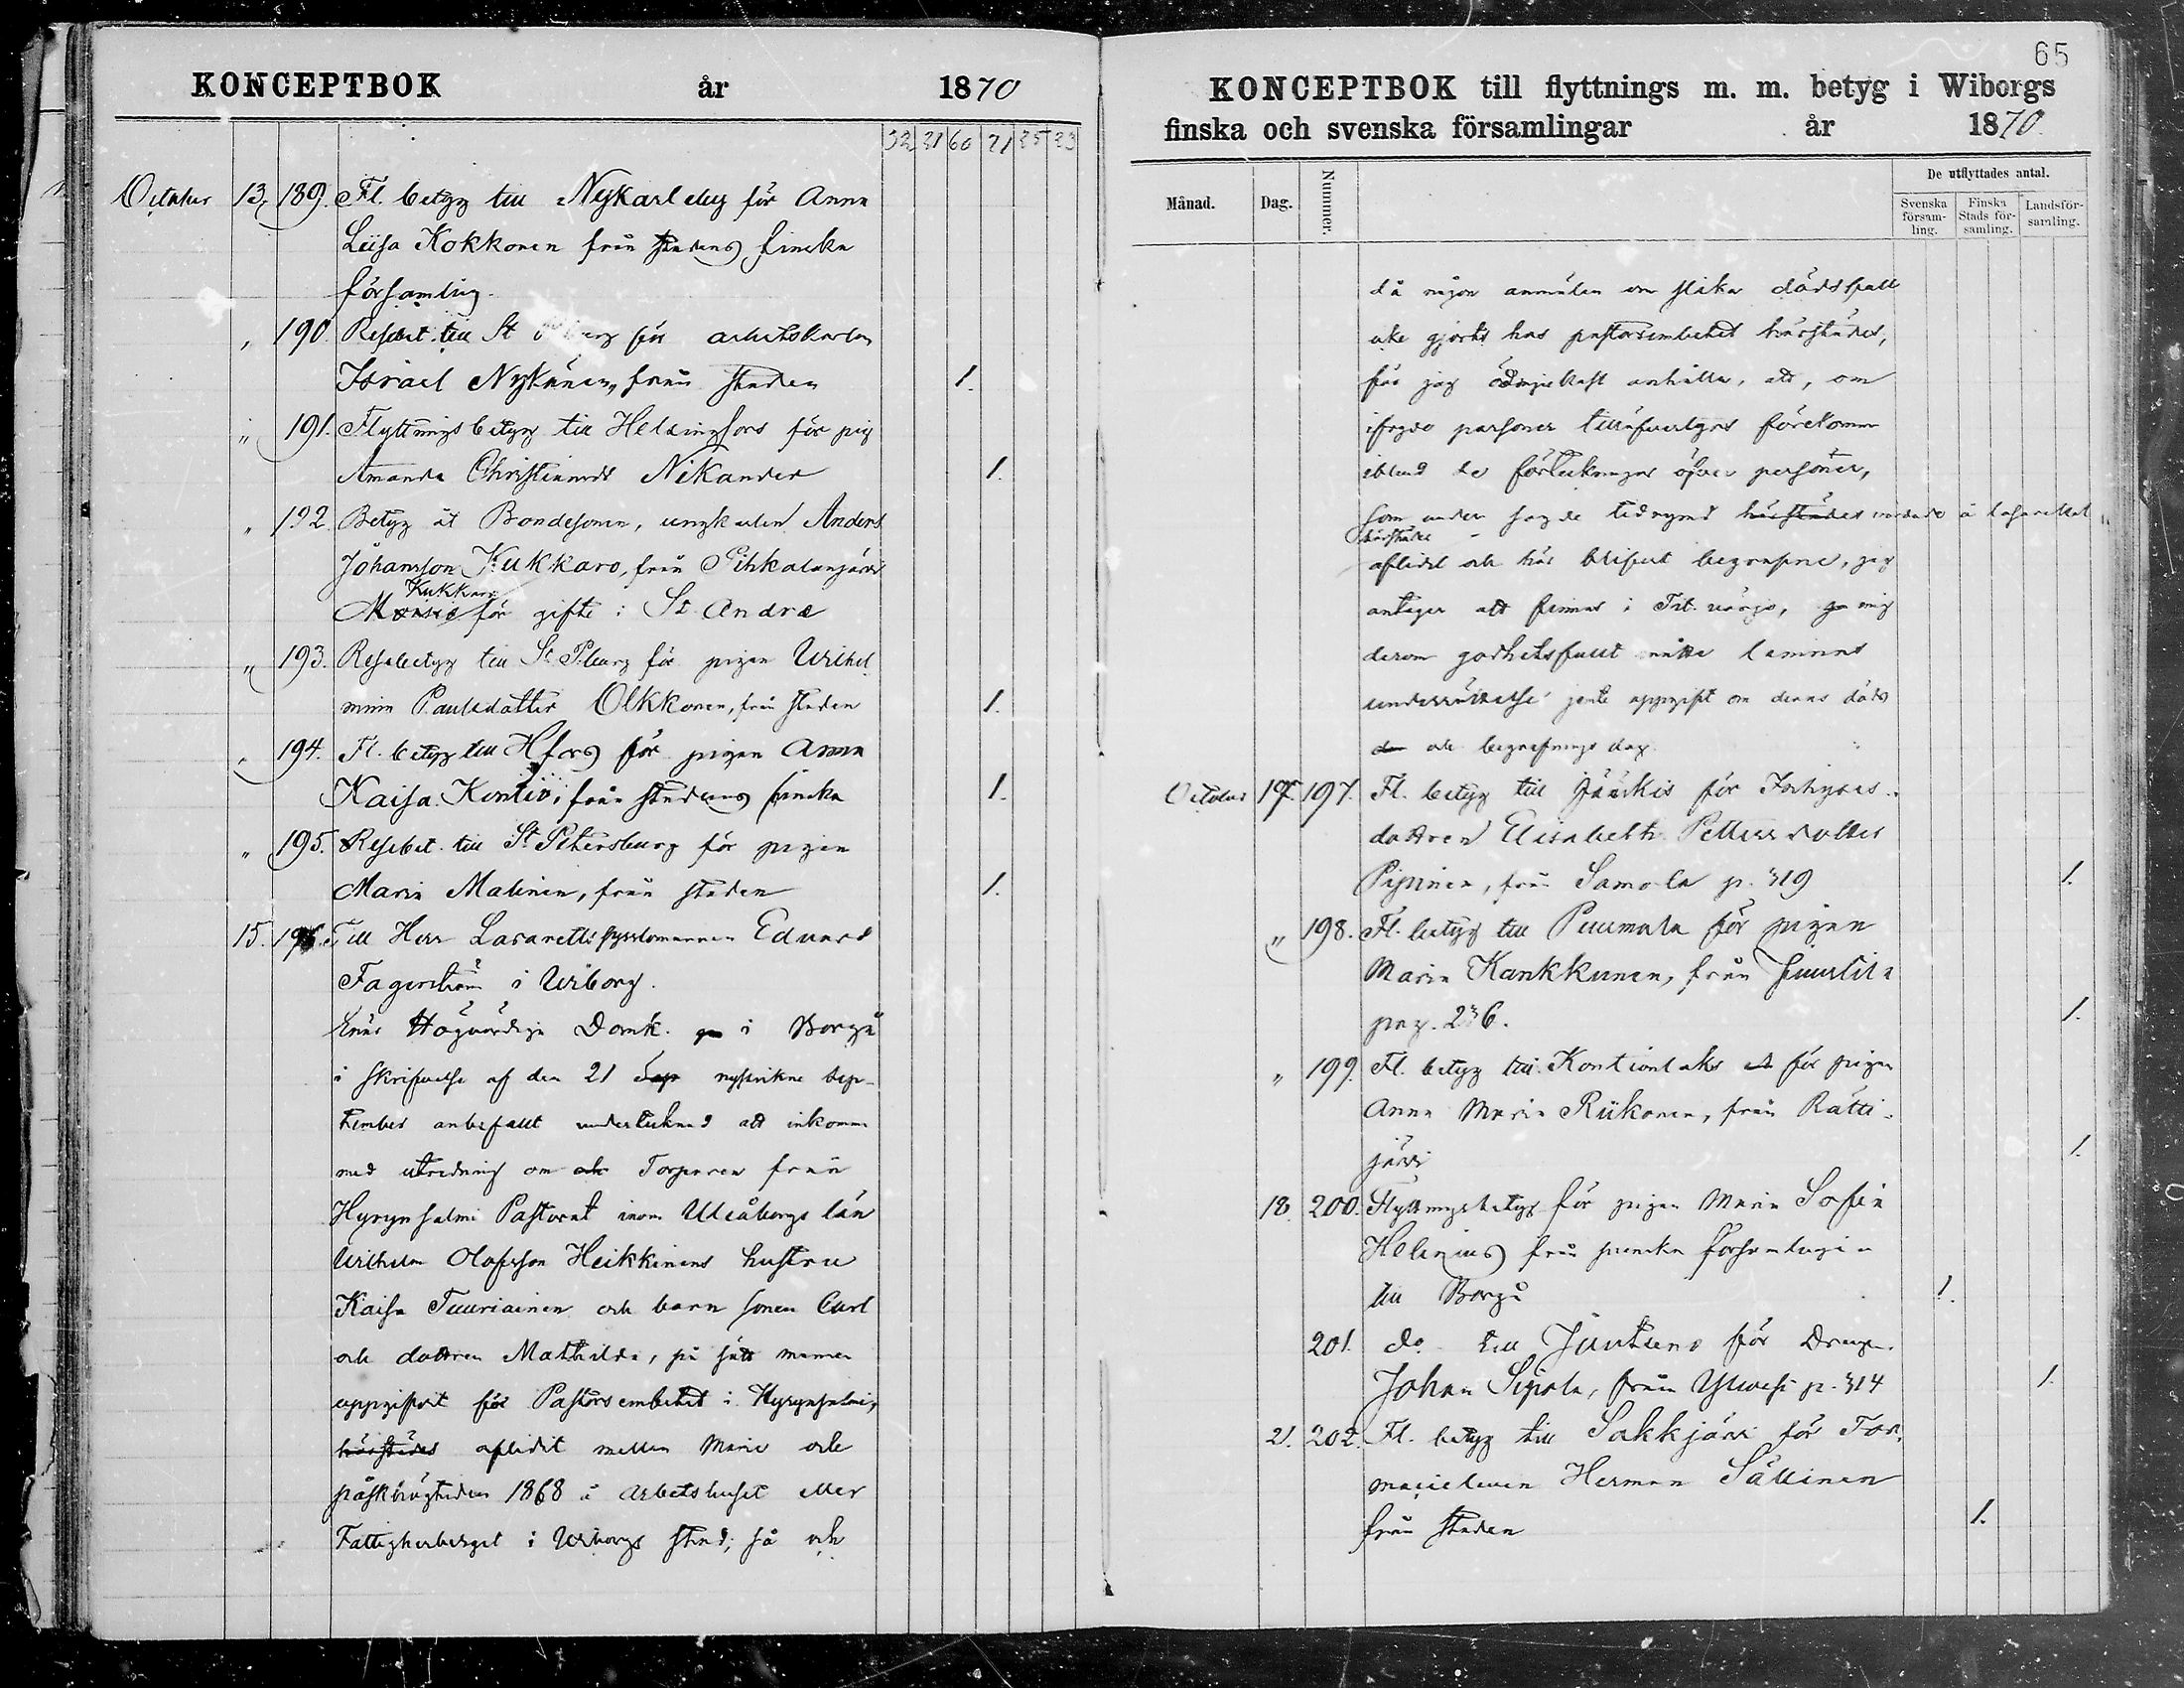 KONCEPTBOK år 1870
32 31 60 71 25 23
October 13. 189. Fl. betyg till Nykarleby för Anna
Liisa Kokkonen från stadens finska
församling.
" 190. Resebet. till St för arbetskarlen
Israel Nykänen, från staden 1.
" 191. Flyttningsbetyg till Helsingfors för pig
Amanda Christinasdr Nikander 1.
" 192. Betyg åt Bondesonen, ungkarlen Anders
Johansson Kukkaro, från Pihkalanjärvi
Kukkaro
för gifte i St. Andrae
" 193. Resebetyg till St. P.burg för pigan Wilhel
mina Paulsdotter Olkkonen, från staden 1.
" 194. Fl. betyg till Hfors för pigan Anna
Kaisa Kontio, från stadens finska 1.
" 195. Resebet. till St. Petersburg för pigan
Maria Malinen, från staden 1.
15. 196. Till Herr Lasaretts sysslomannen Eduard
Fagerström i Wiborg.
Högvördige Domk. i Borgå
i skrifvelse af den 21 Sep nyssvikne Sep-
tember anbefallt undertecknad att inkomma
med utredning om Torparen från
Hyrynsalmi Pastorat inom Uleåborgs län
Wilhelm Olofsson Heikkinens hustru
Kaisa Tuuriainen och barn sonen Carl
och dottren Mathilda, på sätt mannen
uppgifvit för Pastorsembetet i Hyrynsalmi,
härstädes aflidit mellan Marie och
påskhögtiden 1868 i Arbetshuset eller
Fattigherberget i Wiborgs stad; så och
65
KONCEPTBOK till flyttnings m. m. betyg i Wiborgs
finska och svenska församlingar år 1870
Månad. Dag. Nummer. De utflyttades antal.
Svenska försam- ling. Finska Stads för- samling. Landsför- samling.
då någon anmälan om slika dödsfall
icke gjorts hos pastorsembetet härstädes,
får jag ödmjukast anhålla, att, om
ifrågav personer tilläfventyrs förekomma
ibland de förteckningar öfver personer,
som under sagde tidrymd härstädes vårdade å lasarettet
härstädes
aflidit och här blifvit begrafne, jag
antager att finnas i Tit. värjo, mig
derom godhetsfullt måtte lemnas
underrättelse jemte uppgift om deras döds
och begrafnings dag.
October 17. 197. Fl. betyg till Jääskis för
dottren Elisabeth Pettersdotter
Pipinen, från Samola p. 319 1.
" 198. Fl. betyg till Puumala för pigan
Maria Kankkunen, från
pag. 236. 1.
" 199. Fl. betyg till Kontiolaks för pigan
Anna Maria Riikonen, från Rätti-
järvi 1.
18. 200. Flyttningsbetyg för pigan Maria Sofia
Helenius från svenska församlingen
till Borgå 1.
201. do till Joutseno för Drengen
Johan Sipola, från Ylivesi p. 314 1.
21. 202. Fl. betyg till Säkkjärvi för Far-
macieleven Herman Sällinen
från staden 1.